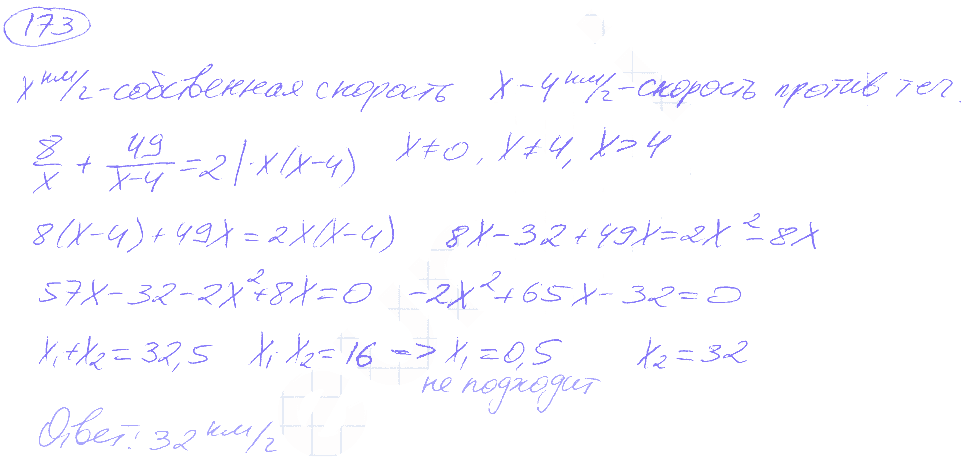 173
x км/г - собственная скорость x - 4 км/г - скорость против теч.
8/x + 49/(x-4) = 2 | · x(x-4) x ≠ 0, x ≠ 4, x > 4
8(x-4) + 49x = 2x(x-4) 8x - 32 + 49x = 2x² - 8x
57x - 32 - 2x² + 8x = 0 -2x² + 65x - 32 = 0
x₁ + x₂ = 32,5 x₁ · x₂ = 16 -> x₁ = 0,5 x₂ = 32
не подходит
Ответ: 32 км/г